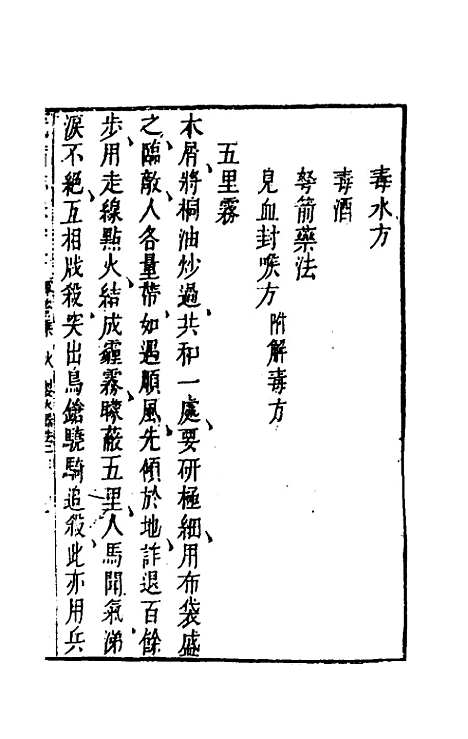 毒水方
毒酒
弩箭藥法
見血封喉方 附解毒方
五里霧
木屑將桐油炒過共和一處要研極細用布袋盛
之臨敵人各量帶如遇順風先傾於地詐退百餘
步用走線點火結成霾霧矇蔽五里人馬聞氣涕
淚不絕互相戕殺突出鳥鎗驍騎追殺此亦用兵